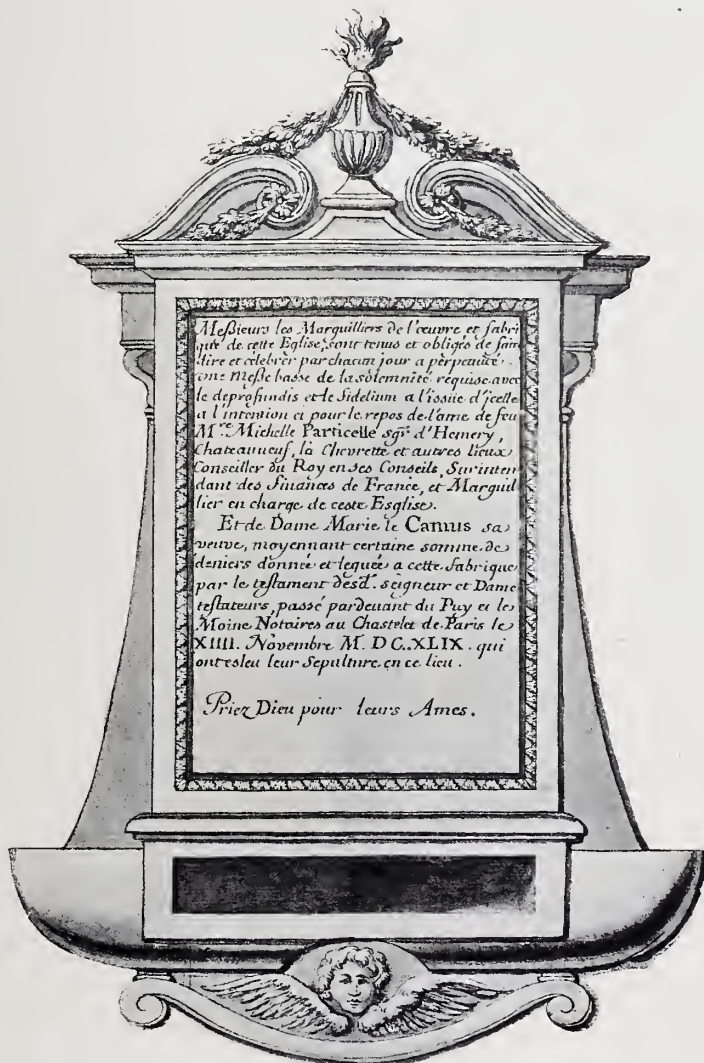 Meßieurs les Marguilliers de l'œuvre et fabri
que de cette Eglise, sont tenus et obligés de faire
dire et célébrer par chacun jour a pèrpetuité.
une Meße basse de la solemnité requise avec
le deprofundis et le fidelium a l'issüe d'jcelle
a l'intention et pour le repos de l'ame de feu
M.re Michelle Particelle sgr. d'Hemery,
Chateauneuf, la Chevrette et autres lieux
Conseiller du Roy en ses Conseils, Surinten
dant des Finances de France, et Marguil
lier en charge de ceste Esglise.
Et de Dame Marie le Camus sa
veuve, moyennant certaine somme de
deniers donnée et leguée a cette fabrique
par le testament desd. seigneur et Dame
testateurs, passé pardevant du Puy et le
Moine Notaires au Chastelet de Paris le
XIIII. Novembre M. DC. XLIX. qui
ont esleu leur Sepulture en ce lieu.
Priez Dieu pour leurs Ames.